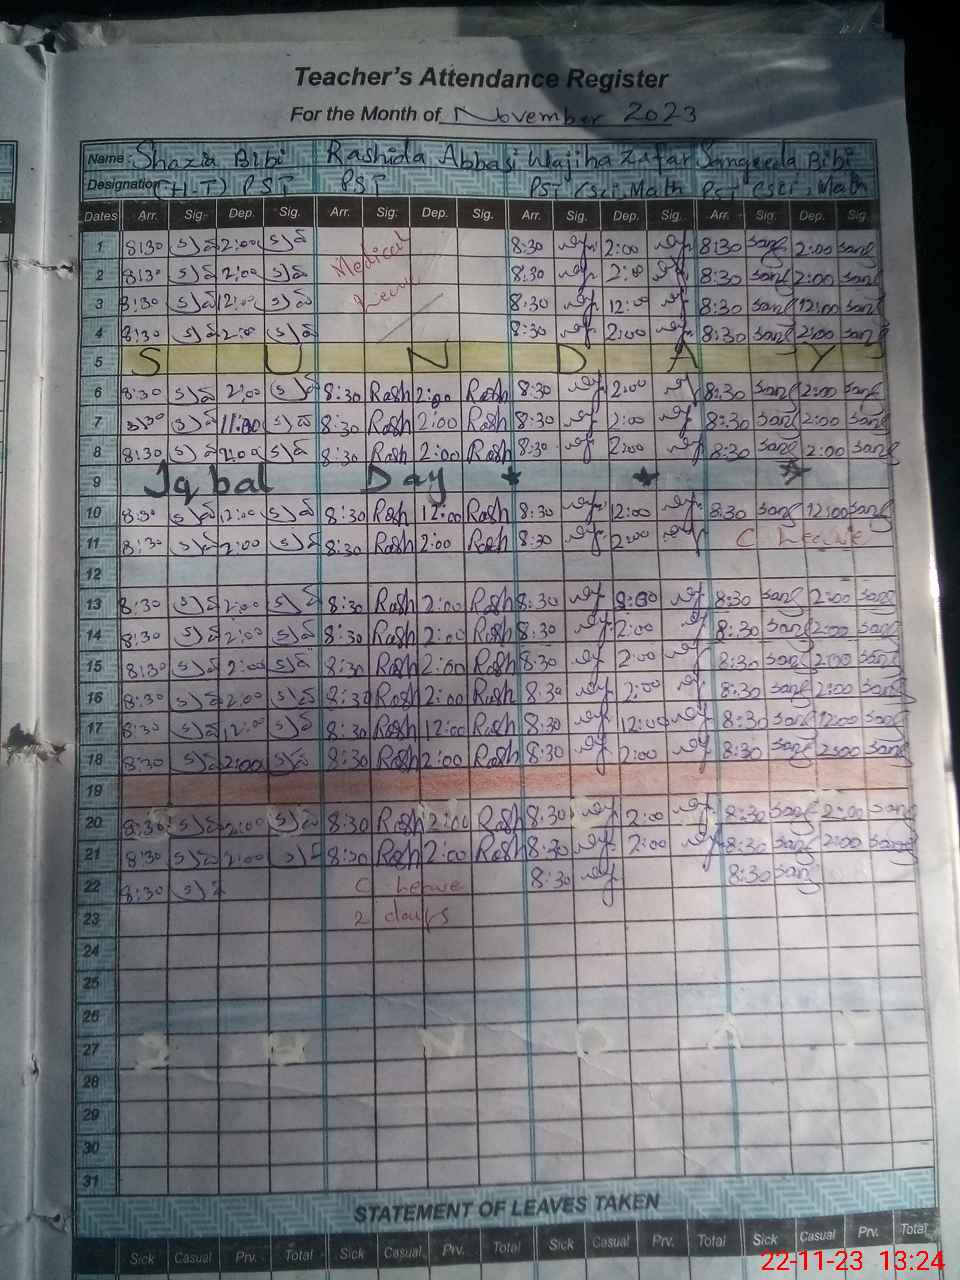 Teacher's Attendance Register
For the Month of November 2023
Name Shazia Bibi Rashida Abbasi Wajiha Zafar Sangeeda Bibi
Designation (H-T) PST PST PST (Sci, Math PST (Sci, Math
Dates Arr. Sig. Dep. Sig. Arr. Sig. Dep. Sig. Arr. Sig. Dep. Sig. Arr. Sig. Dep. Sig.
1 8:30 2:00 Medical 8:30 2:00 8:30 sang 2:00 sang
2 8:30 2:00 8:30 2:00 8:30 sang 2:00 sang
3 8:30 12:00 Leave 8:30 12:00 8:30 sang 12:00 sang
4 8:30 2:00 8:30 2:00 8:30 sang 2:00 sang
5 S U N D A Y
6 8:30 2:00 8:30 Rash 2:00 Rash 8:30 2:00 8:30 sang 2:00 sang
7 8:30 11:00 8:30 Rash 2:00 Rash 8:30 2:00 8:30 sang 2:00 sang
8 8:30 2:00 8:30 Rash 2:00 Rash 8:30 2:00 8:30 sang 2:00 sang
9 Iqbal Day
10 8:30 12:00 8:30 Rash 12:00 Rash 8:30 12:00 8:30 sang 12:00 sang
11 8:30 2:00 8:30 Rash 2:00 Rash 8:30 2:00 C Leave
12
13 8:30 2:00 8:30 Rash 2:00 Rash 8:30 8:30 sang 2:00 sang
14 8:30 2:00 8:30 Rash 2:00 Rash 8:30 2:00 8:30 sang 2:00 sang
15 8:30 2:00 8:30 Rash 2:00 Rash 8:30 2:00 8:30 sang 2:00 sang
16 8:30 2:00 8:30 Rash 2:00 Rash 8:30 2:00 8:30 sang 2:00 sang
17 8:30 12:00 8:30 Rash 12:00 Rash 8:30 12:00 8:30 sang 12:00 sang
18 8:30 2:00 8:30 Rash 2:00 Rash 8:30 2:00 8:30 sang 2:00 sang
19
20 8:30 2:00 8:30 Rash 2:00 Rash 8:30 2:00 8:30 sang 2:00 sang
21 8:30 2:00 8:30 Rash 2:00 Rash 8:30 2:00 8:30 sang 2:00 sang
22 8:30 C Leave 8:30 8:30 sang
23 2 days
24
25
26
27
28
29
30
31
STATEMENT OF LEAVES TAKEN
Sick Casual Prv. Total Sick Casual Prv. Total Sick Casual Prv. Total Sick Casual Prv. Total
22-11-23 13:24